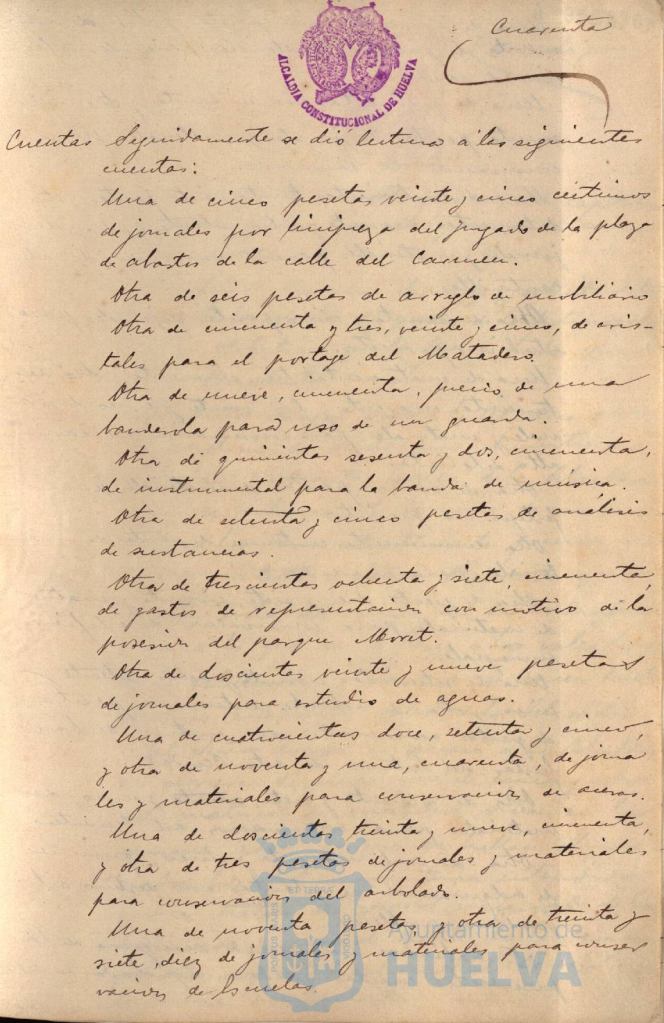 Cuarenta
ALCALDIA CONSTITUCIONAL DE HUELVA
Cuentas Seguidamente se dió lectura a las siguientes
cuentas:
Una de cinco pesetas veinte y cinco céntimos
de jornales por limpieza del juzgado de la plaza
de abastos de la calle del Carmen.
Otra de seis pesetas de arreglo de mobiliario
Otra de cincuenta y tres, veinte y cinco, de cris-
tales para el portaje del Matadero.
Otra de nueve, cincuenta, precio de una
banderola para uso de un guarda.
Otra de quinientas sesenta y dos, cincuenta,
de instrumental para la banda de música.
Otra de setenta y cinco pesetas de análisis
de sustancias.
Otra de trescientas ochenta y siete, cincuenta,
de gastos de representación con motivo de la
posesión del parque Moret.
Otra de doscientas veinte y nueve pesetas
de jornales para estudio de aguas.
Una de cuatrocientas doce, setenta y cinco,
y otra de noventa y una, cuarenta, de jorna
les y materiales para conservación de aceras.
Una de doscientas treinta y nueve, cincuenta,
y otra de tres pesetas de jornales y materiales
para conservación del arbolado.
Una de noventa pesetas y otra de treinta y
siete, diez de jornales y materiales para conser
vación de Escuelas.
Ayuntamiento de
HUELVA